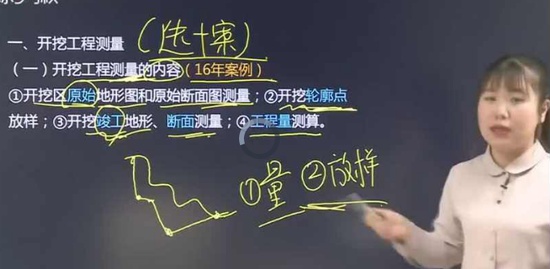 一、开挖工程测量（选+案）
（一）开挖工程测量的内容（16年案例）
①开挖区原始地形图和原始断面图测量；②开挖轮廓点
放样；③开挖竣工地形、断面测量；④工程量测算。
①量 ②放样